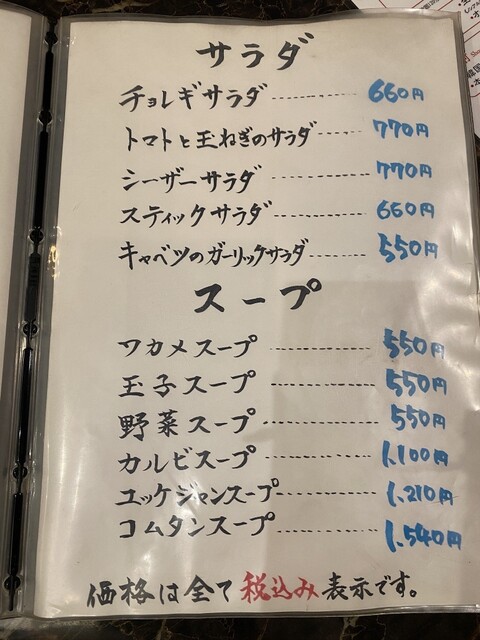 サラダ
チョレギサラダ 660円
トマトと玉ねぎのサラダ 770円
シーザーサラダ 770円
スティックサラダ 660円
キャベツのガーリックサラダ 550円
スープ
ワカメスープ 550円
玉子スープ 550円
野菜スープ 550円
カルビスープ 1,100円
ユッケジャンスープ 1,210円
コムタンスープ 1,540円
価格は全て税込み表示です。